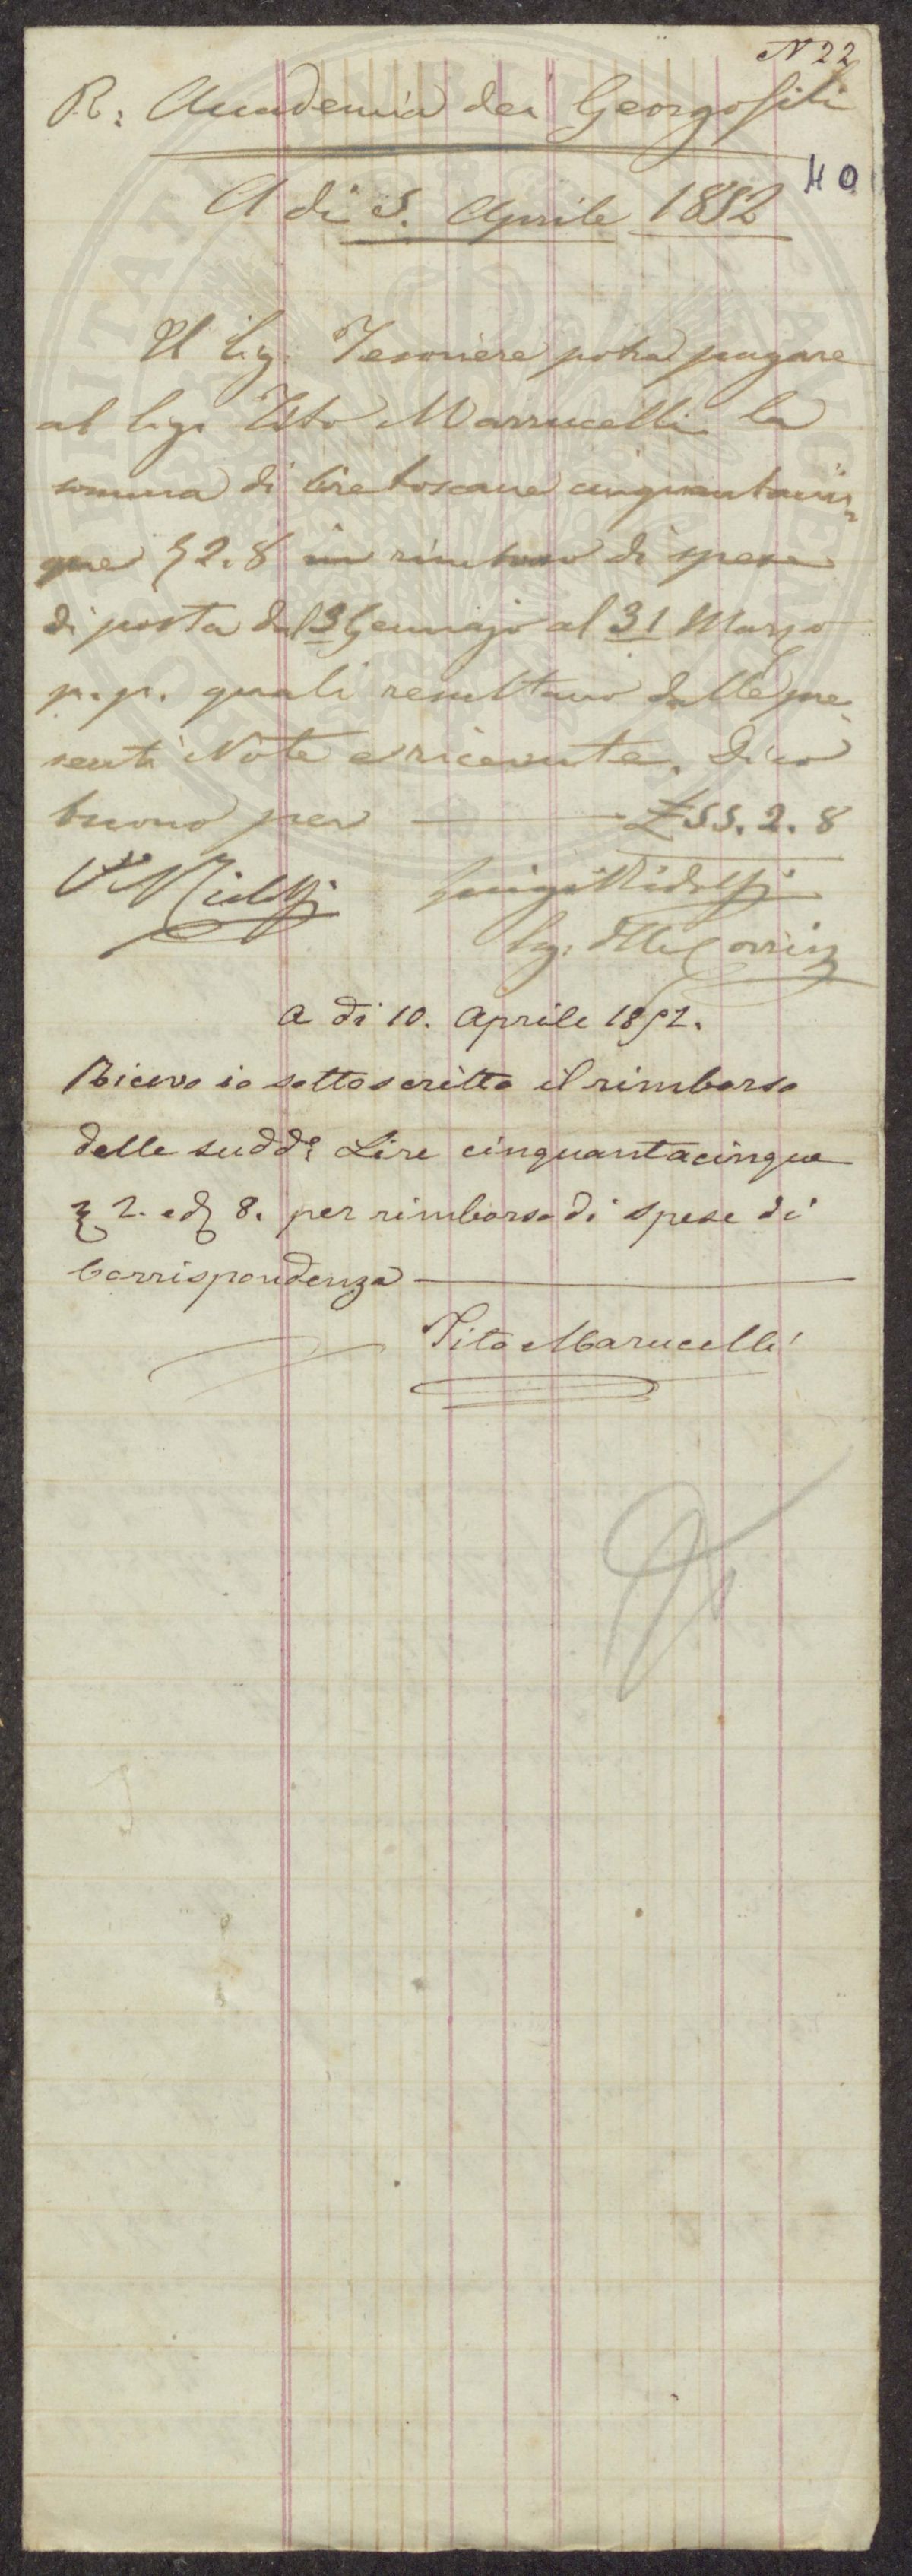 N 22
R: Accademia dei Georgofili
40
A di 5. Aprile 1852
Il Sig. Tesoriere potrà pagare
al Sig. Tito Marrucelli la
somma di lire toscane cinquantacin=
que 2.8 in rimborso di spese
di posta dal 3 Gennajo al 31 Marzo
p.p. quali resultano dalle pre
senti Note e ricevute. Dico
buono per £55.2.8
V° Ridolfi Luigi Ridolfi
Seg: delle Corrisp
A di 10. Aprile 1852.
Ricevo io sottoscritto il rimborso
delle sudd.e Lire cinquantacinque
2. e 8. per rimborso di spese di
Corrispondenza
Tito Marucelli